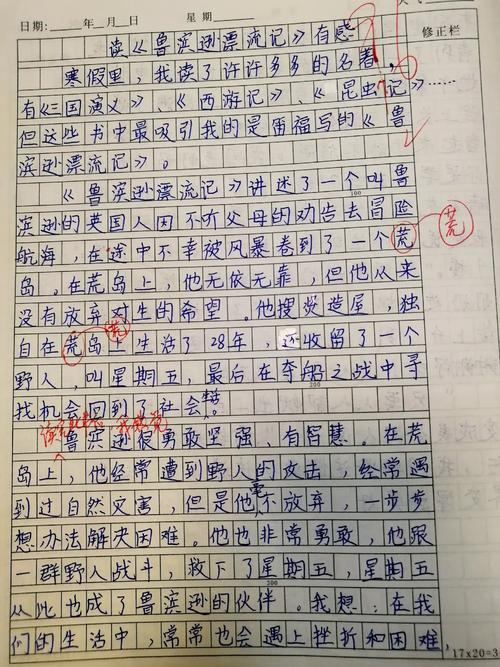 日期:____年__月__日 星期____
修正栏
读《鲁滨逊漂流记》有感
寒假里，我读了许许多多的名著，
有《三国演义》、《西游记》、《昆虫记》……
但这些书中最吸引我的是雷福写的《鲁
滨逊漂流记》。
《鲁滨逊漂流记》讲述了一个叫鲁
100
滨逊的英国人因不听父母的劝告去冒险
航海，在途中不幸被风暴卷到了一个荒
荒
岛。在荒岛上，他无依无靠，但他从来
没有放弃对生的希望。他搜造屋，独
荒
自在荒岛上生活了28年，还收留了一个
野人，叫星期五，最后在夺船之战中寻
200
找机会回到了社会。
鲁滨逊很勇敢坚强、有智慧。在荒
岛上，他经常遭到野人的攻击，经常遇
到过自然灾害，但是他毫不放弃，一步步
想办法解决困难。他也非常勇敢，他跟
一群野人战斗，救下了星期五，星期五
300
从此也成了鲁滨逊的伙伴。我想：在我
们的生活中，常常也会遇上挫折和困难，
17×20=3